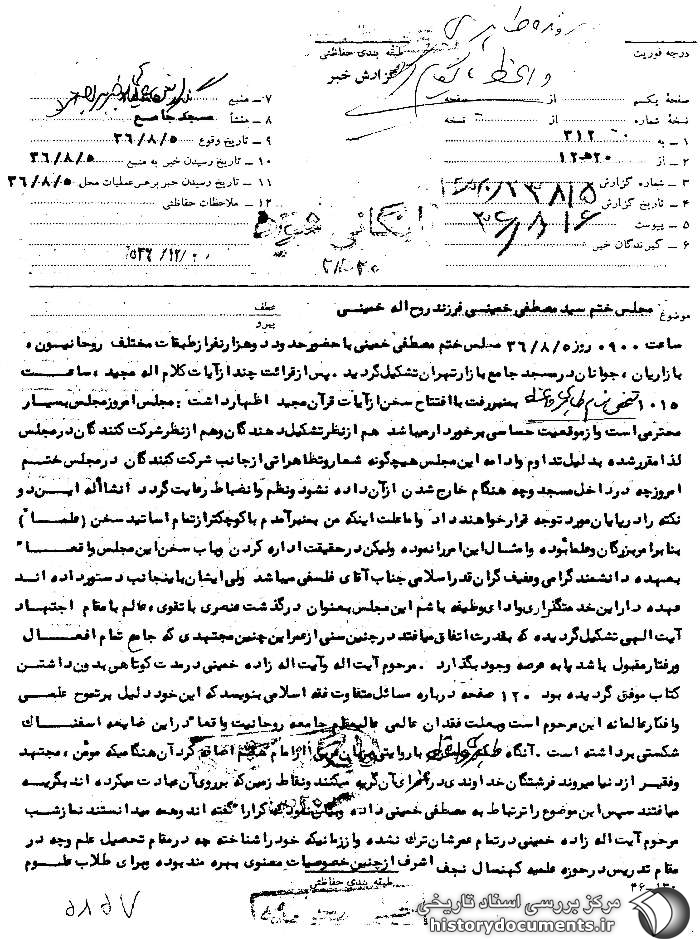 پرونده طاهری
درجه فوریت
طبقه بندی حفاظتی
گزارش خبر
صفحه یکم از صفحه
نسخه شماره از نسخه
۱ – به ۳۱۲
۲ – از ۱۲ه۲۰
۳ – شماره گزارش
۴ – تاریخ گزارش ۳۶/۸/۶
۵ – پیوست
۶ – گیرندگان خبر
۷ – منبع
۸ – منشأ مسجد جامع
۹ – تاریخ وقوع ۳۶/۸/۵
۱۰ – تاریخ رسیدن خبر به منبع ۳۶/۸/۵
۱۱ – تاریخ رسیدن خبر برهبر عملیات محل ۳۶/۸/۵
۱۲ – ملاحظات حفاظتی
موضوع مجلس ختم سید مصطفی خمینی فرزند روح اله خمینی
عطف
پیرو
ساعت ۰۹۰۰ روز ۳۶/۸/۵ مجلس ختم مصطفی خمینی با حضور حدود دو هزار نفر از طبقات مختلف روحانیون ،
بازاریان ، جوانان در مسجد جامع بازار تهران تشکیل گردید . پس از قرائت چند از آیات کلام اله مجید ، ساعت
۱۰۱۵ شخصی بنام بمنبر رفت با افتتاح سخن از آیات قرآن مجید اظهار داشت : مجلس امروز مجلس بسیار
محترمی است و از موقعیت حساسی برخوردار میباشد هم از نظر تشکیل دهندگان و هم از نظر شرکت کنندگان در مجلس
لذا مقرر شده بدلیل تداوم و ادامه این مجلس هیچگونه شعار و تظاهراتی از جانب شرکت کنندگان در مجلس ختم
امروز چه در داخل مسجد و چه هنگام خارج شدن از آن داده نشود و نظم و انضباط رعایت گردد انشااله این دو
نکته را در پایان مورد توجه قرار خواهند داد و اما علت اینکه من بمنبر آمدم با کوچکتر از تمام اساتید سخن (علما)
بنا بر امر بزرگان و علما بوده و امتثال این امر را نموده ولیکن در حقیقت اداره کردن و باب سخن این مجلس واقعا"
بعهده دانشمند گرامی و عفیف گران قدر اسلامی جناب آقای فلسفی میباشد ولی ایشان باینجانب دستور داده اند
عهده دار این خدمتگذاری و ادای وظیفه باشم این مجلس بعنوان درگذشت عنصری با تقوی ، عالم با مقام اجتهاد
آیت الهی تشکیل گردیده که بقدرت اتفاق میافتد در چنین سنی از عمر این چنین مجتهدی که جامع تمام افعال
و رفتار مقبول باشد پا به عرصه وجود بگذارد . مرحوم آیت اله و آیت اله زاده خمینی در مدت کوتاهی بدون داشتن
کتاب موفق گردیده بود ۱۲۰ صفحه درباره مسائل متفاوت فقه اسلامی بنویسد که این خود دلیل بر نبوغ علمی
و افکار عالمانه این مرحوم است و بعلت فقدان عالمی عالیقدر جامعه روحانیت واقعا" در این ضایعه اسفناک
شکستی برداشته است . آنگاه با روایتی از امام اضافه کرد آن هنگامیکه مومن ، مجتهد
و فقیر از دنیا میروند فرشتگان خداوندی در عزای آن گریه میکنند و نقاط زمین که بر روی آن عبادت میکرده اند بگریه
میافتند سپس این موضوع را ارتباط به مصطفی خمینی داده و که کرارا" گفته اند و همه میدانستند نماز شب
مرحوم آیت اله زاده خمینی در تمام عمرشان ترک نشده و از زمانیکه خود را شناخته چه در مقام تحصیل علم و چه در
مقام تدریس در حوزه علمیه کهنسال نجف اشرف از چنین خصوصیات معنوی بهره مند بوده و برای طلاب علوم
طبقه بندی حفاظتی
مرکز بررسی اسناد تاریخی
historydocuments.ir